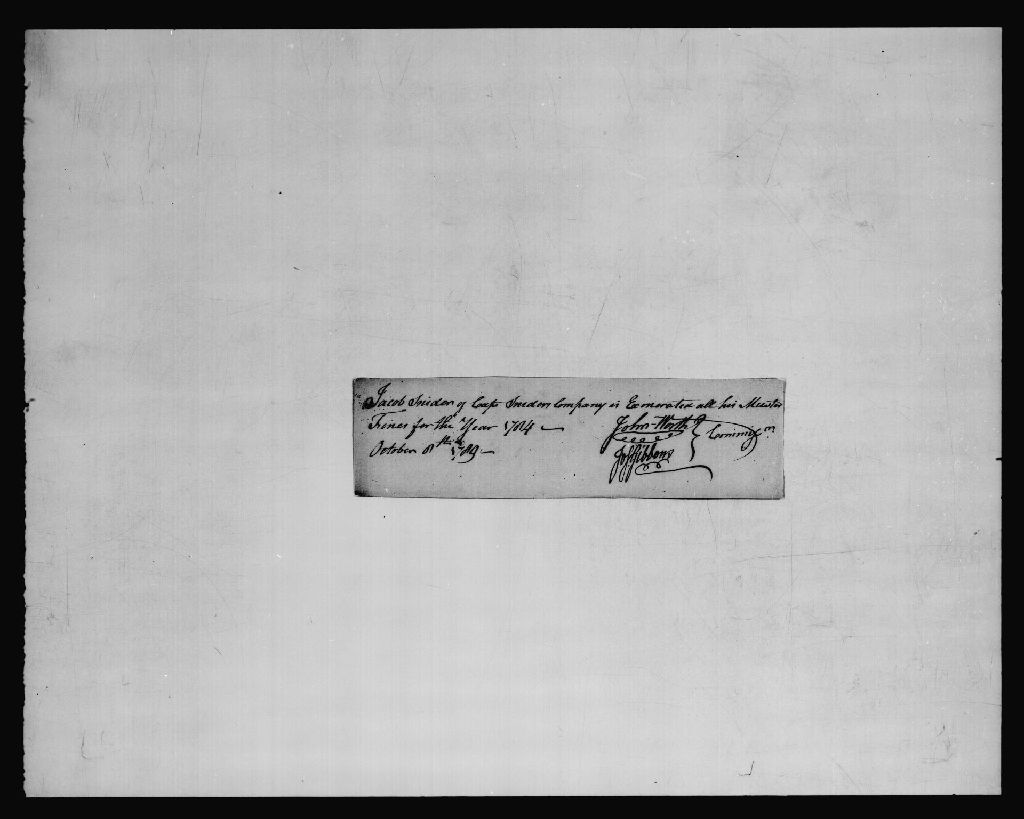 Jacob Snider of Capt Snider Company is Exonerated all his Muster
Fines for the Year 1784
October 8th 1789
John Worth
Commiss rs
Js Gibbons